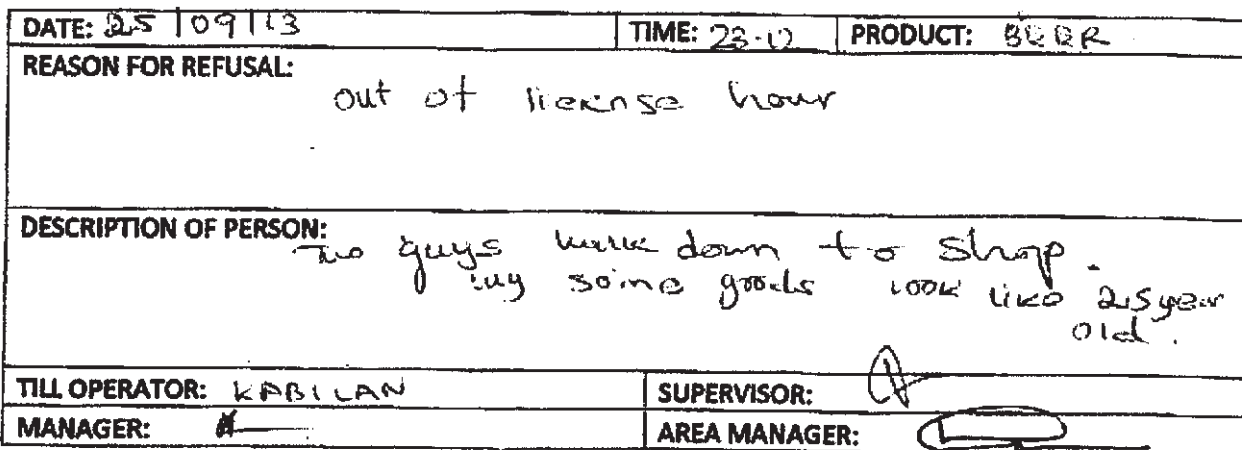 DATE: 25/09/13 TIME: PRODUCT: BEER
REASON FOR REFUSAL:
out of license hour
DESCRIPTION OF PERSON:
Two guys walk down to shop.
buy some goods look like 25 year
old.
TILL OPERATOR: KABILAN SUPERVISOR:
MANAGER: AREA MANAGER: